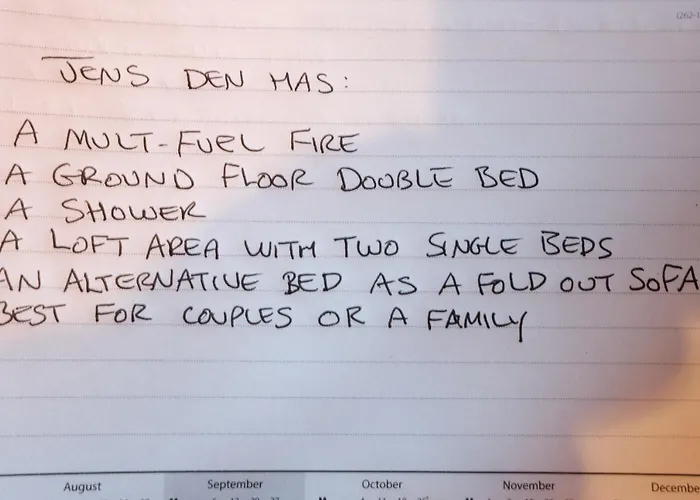 JENS DEN HAS:
A MULT-FUEL FIRE
A GROUND FLOOR DOUBLE BED
A SHOWER
A LOFT AREA WITH TWO SINGLE BEDS
AN ALTERNATIVE BED AS A FOLD OUT SOFA
BEST FOR COUPLES OR A FAMILY
August September October November Decembe